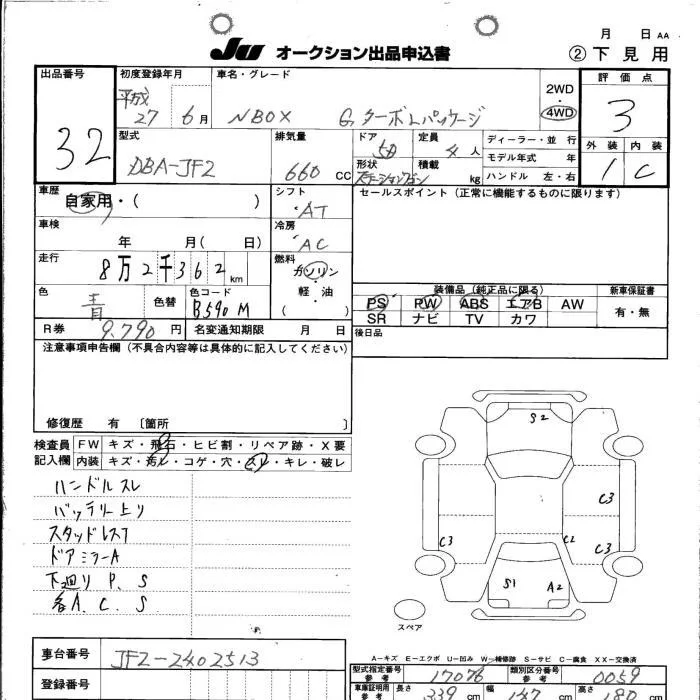 月 日 AA
JU オークション出品申込書 ② 下見用
出品番号 初度登録年月 車名・グレード 2WD・4WD 評価点
32 平成 27 6月 NBOX Gターボ Lパッケージ 3
型式 排気量 ドア 定員 ディーラー・並行 外装 内装
DBA-JF2 660 CC 5D 4人 モデル年式 年 1 C
形状 積載 kg ハンドル 左・右
ステーションワゴン
車歴 自家用・( ) シフト セールスポイント(正常に機能するものに限ります)
・AT
車検 年 月( 日) 冷房
・AC
走行 8万2千362km 燃料
ガソリン・軽油 ( )
装備品(純正品に限る) 新車保証書
PS PW ABS エアB AW 有・無
SR ナビ TV カワ
色 青 色替 色コード B590M
R券 9,790円 名変通知期限 月 日 後日品
注意事項申告欄(不具合内容等は具体的に記入してください)
修復歴 有 〔箇所 〕
検査員記入欄 FW キズ・飛石・ヒビ割・リペア跡・X要
内装 キズ・汚レ・コゲ・穴・スレ・キレ・破レ
ハンドルスレ
バッテリー上り
スタッドレス7
ドアミラーA
下廻り P、S
各A、C、S
S2
C3
C3 C2 C3
S1 A2
スペア
A－キズ E－エクボ U－凹み W－補修跡 S－サビ C－腐食 XX－交換済
車台番号 JF2-2402513
型式指定番号 参考 17076 類別区分番号 参考 0059
登録番号
車庫証明用 参考 長さ 339 cm 幅 147 cm 高さ 180 cm